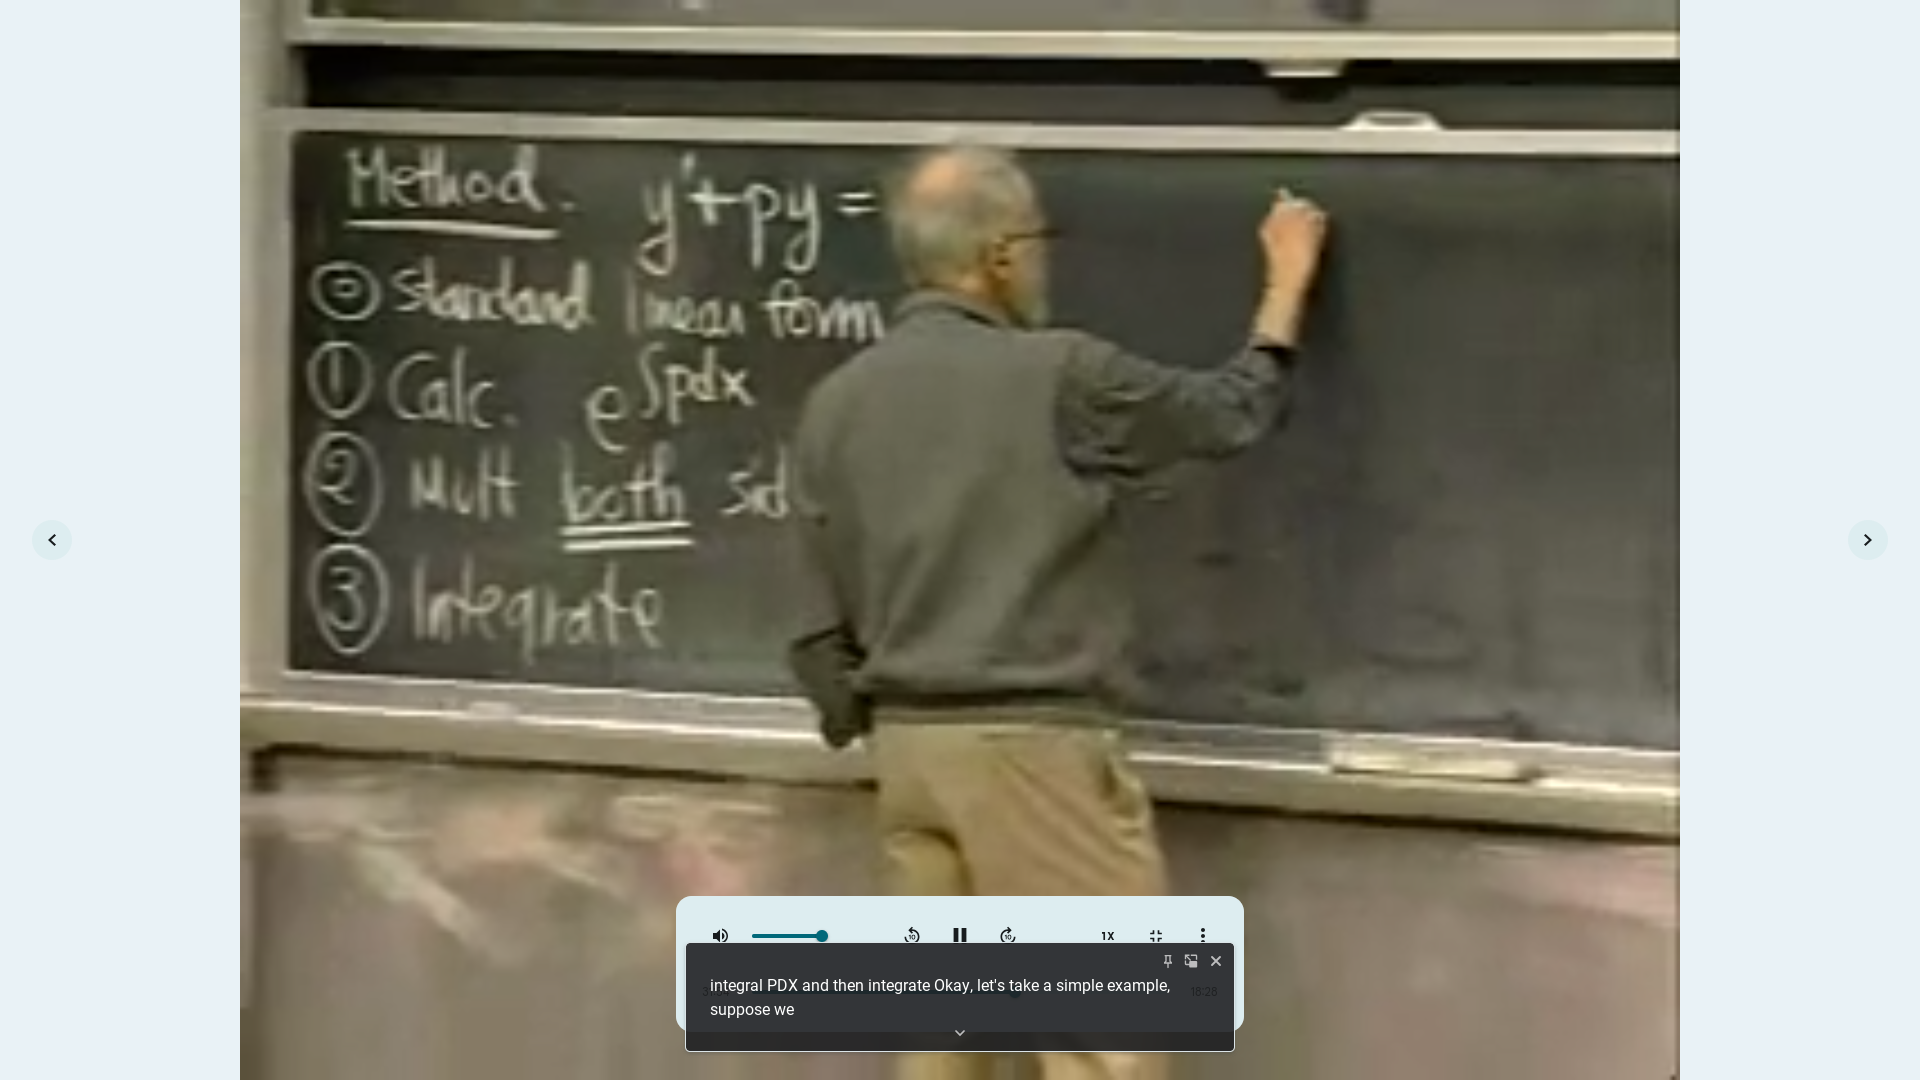 Method. y' + py =
⓪ Standard linear form
① Calc. e^∫pdx
② Mult both sid
③ Integrate
10 10 1X
integral PDX and then integrate Okay, let's take a simple example,
18:28
suppose we